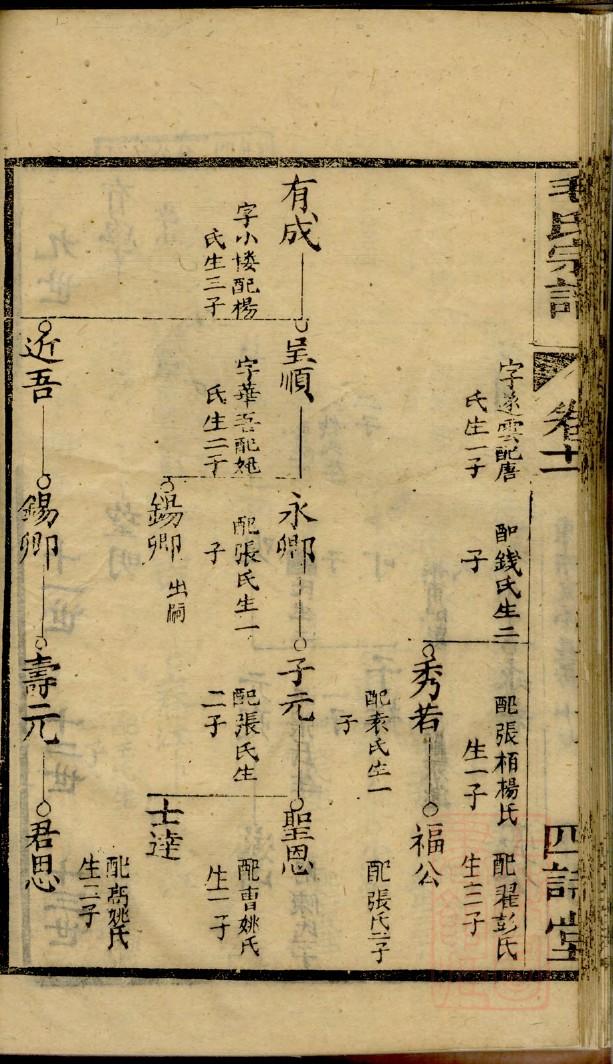 毛氏宗譜
卷十一
四詩堂
字遂雲配唐
氏生一子
配錢氏生二
子
配張栢楊氏
生一子
配翟彭氏
生三子
秀若
配袁氏生一
子
福公
配張氏二子
有成
字小楼配楊
氏生三子
呈順
字華吾配姚
氏生二子
永卿
配張氏生一
子
子元
配張氏生
二子
聖恩
配曹姚氏
生一子
錫卿
出嗣
士達
近吾
錫卿
壽元
君思
配高姚氏
生二子